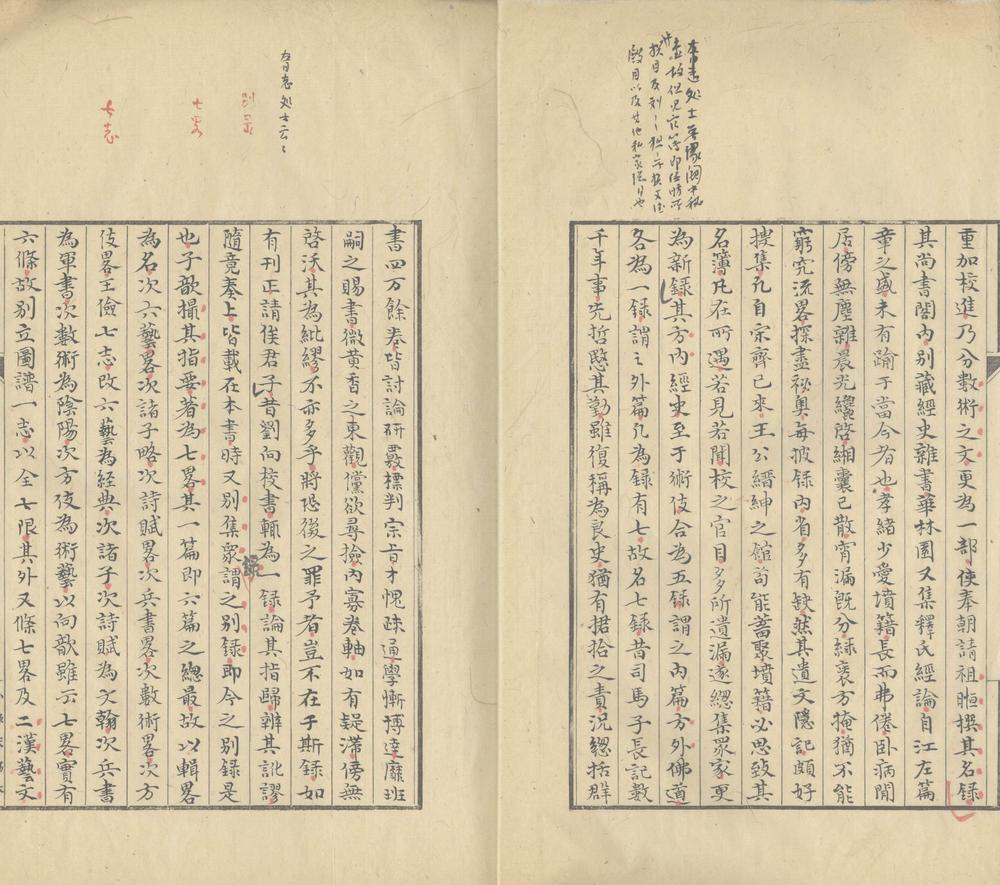 重加校進乃分數術之文更為一部使奉朝請祖暅撰其名錄
其尚書閣內別藏經史雜書華林園又集釋氏經論自江左篇
章之盛未有踰于當今者也孝緒少愛墳籍長而弗倦臥病閒
居傍無塵雜晨光纔啓緗囊已散宵漏既分綠袠方掩猶不能
窮究流畧探盡祕奧每披錄內省多有缺然其遺文隱記頗好
搜集凡自宋齊已來王公縉紳之館苟能蓄聚墳籍必思致其
名簿凡在所遇若見若聞校之官目多所遺漏遂總集眾家更
為新錄其方內經史至于術伎合為五錄謂之內篇方外佛道
各為一錄謂之外篇凡為錄有七故名七錄昔司馬子長記數
千年事先哲愍其勤雖復稱為良史猶有捃拾之責況總括群
書四万餘卷皆討論研覈標判宗旨才愧疎通學慚博達靡班
嗣之賜書微黃香之東觀儻欲尋撿內寡卷軸如有疑滯傍無
啓沃其為紕繆不亦多乎將恐後之罪予者豈不在于斯錄如
有刊正請俟君子昔劉向校書輒為一錄論其指歸辨其訛謬
隨竟奏上皆載在本書時又別集眾錄謂之別錄即今之別錄是
也子歆撮其指要著為七畧其一篇即六篇之總最故以輯畧
為名次六藝畧次諸子略次詩賦畧次兵書畧次數術畧次方
伎畧王儉七志改六藝為經典次諸子次詩賦為文翰次兵書
為軍書次數術為陰陽次方伎為術藝以向歆雖云七畧實有
六條故別立圖譜一志以全七限其外又條七畧及二漢藝文
別錄
七畧
七志